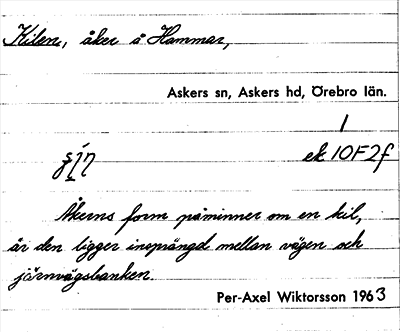 Kilen, åker å Hammar,
Askers sn, Askers hd, Örebro län.
1
ek 10F2f
Åkerns form påminner om en kil,
är den ligger insprängd mellan vägen och
järnvägsbanken.
Per-Axel Wiktorsson 1963